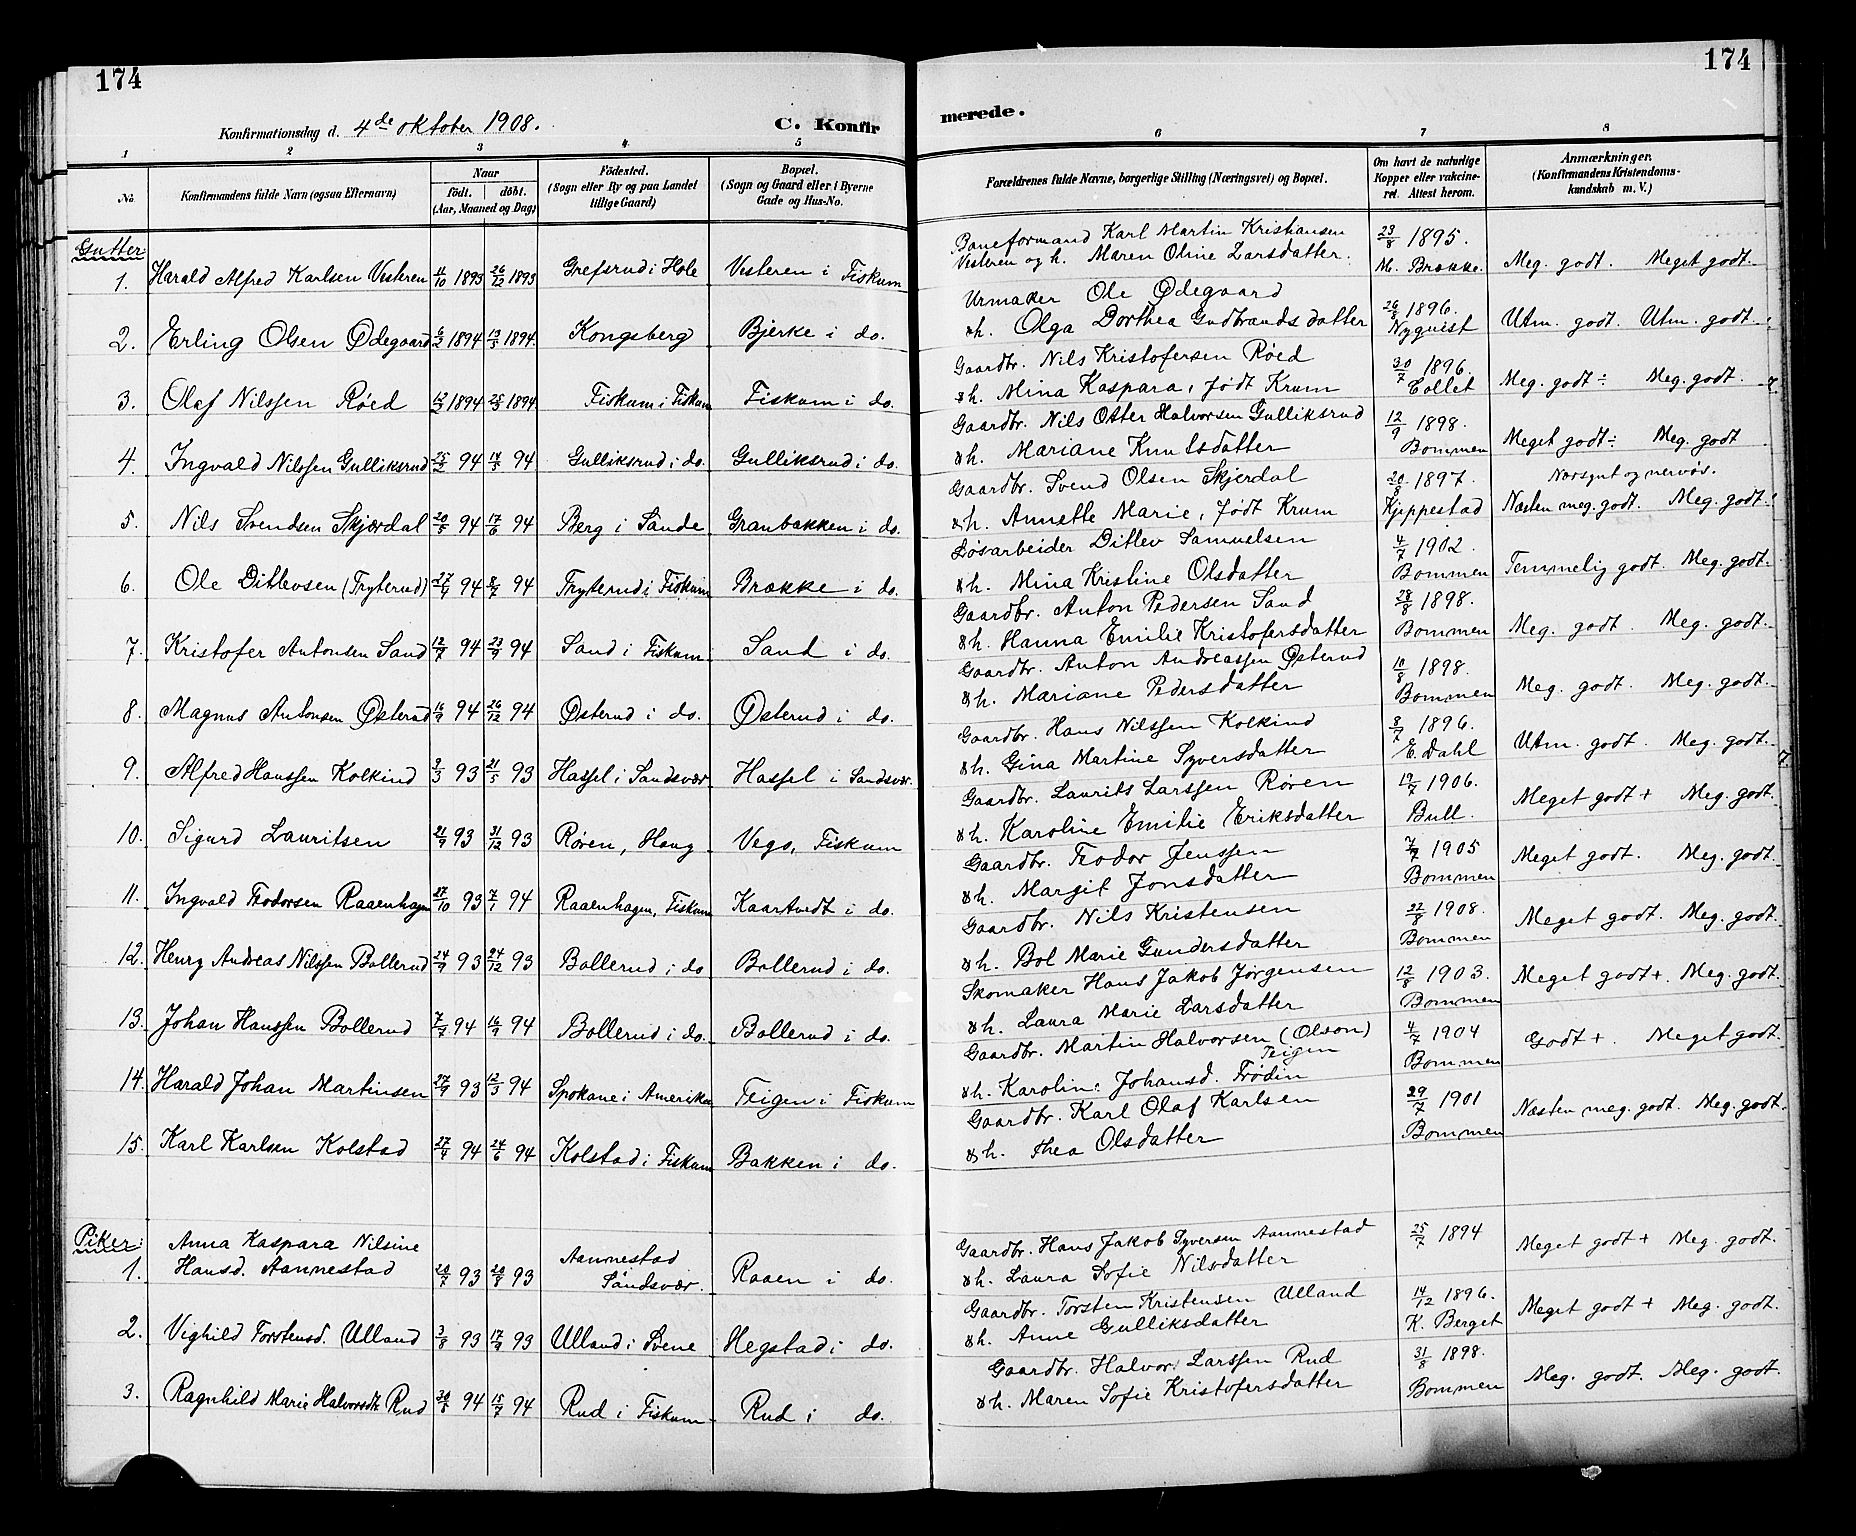 174
174
Konfirmationsdag d. 4de oktober 1908.
C. Konfirmerede.
1 2 3 4 5 6 7 8
No. Konfirmandens fulde Navn (ogsaa Efternavn) Naar født. døbt. (Aar, Maaned og Dag) Fødested. (Sogn eller By og paa Landet tillige Gaard) Bopæl. (Sogn og Gaard eller i Byerne Gade og Hus-No. Forældrenes fulde Navne, borgerlige Stilling (Næringsvei) og Bopæl. Om havt de naturlige Kopper eller vakcineret. Attest herom. Anmærkninger. (Konfirmandens Kristendomskundskab m. V.)
Gutter:
Baneformand Karl Martin Kristiansen 23/8 1895.
1. Harald Alfred Karlsen Vesteren 11/10 1893 26/12 1893 Grefsrud i Hole Vesteren i Fiskum Vesteren og h. Maren Oline Larsdatter. M. Brække. Meg. godt. Meget godt.
Urmaker Ole Ødegaard 26/8 1896.
2. Erling Olsen Ødegaard 6/2 1894 13/5 1894. Kongsberg Bjerke i do. & h. Olga Dorthea Gudbrandsdatter Nyqvist Utm. godt. Utm. godt.
Gaardbr. Nils Kristofersen Røed 30/7 1896.
3. Olaf Nilssen Røed 12/2 1894 25/3 1894. Fiskum i Fiskum Fiskum i do. & h. Mina Kaspara, født Krum Collet Meg. godt ÷ Meg. godt.
Gaardbr. Nils Otter Halvorsen Gulliksrud 12/9 1898.
4. Ingvald Nilssen Gulliksrud 25/2 94 17/5 94 Gulliksrud i do. Gulliksrud i do. & h. Mariane Knutsdatter Bommen Meget godt ÷ Meg. godt
Gaardbr. Svend Olsen Skjerdal 20/8 1897. Nærsynt og nervøs.
5. Nils Svendsen Skjærdal 20/5 94 17/6 94 Berg i Sande Granbakken i do. & h. Annette Marie, født Krum Kjeppestad Næsten meg. godt. Meg. godt
Løsarbeider Ditlev Samuelsen 4/7 1902.
6. Ole Ditlevsen (Tryterud) 27/4 94 8/7 94 Tryterud i Fiskum Brække i do. & h. Mina Kristine Olsdatter Bommen Temmelig godt. Meg. godt.
Gaardbr. Anton Pedersen Sand 28/8 1898.
7. Kristofer Antonsen Sand 12/7 94 23/9 94 Sand i Fiskum Sand i do. & h. Hanna Emilie Kristofersdatter Bommen Meg. godt. Meg. godt.
Gaardbr. Anton Andreassen Østerud 10/8 1898.
8. Magnus Antonsen Østerud 16/9 94 26/12 94 Østerud i do. Østerud i do. & h. Mariane Pedersdatter Bommen Meg. godt. Meg. godt.
Gaardbr. Hans Nilssen Kolkind 8/7 1896.
9. Alfred Hanssen Kolkind 2/3 93 21/5 93 Hassel i Sandsvær Hassel i Sandsvær. & h. Gina Martine Syversdatter E. Dahl Utm. godt. Meg. godt.
Gaardbr. Laurits Larssen Røren 19/7 1906.
10. Sigurd Lauritsen 21/9 93 31/12 93 Røren, Haug Vego, Fiskum & h. Karoline Emilie Eriksdatter Bull. Meget godt + Meg. godt.
Gaardbr. Teodor Jenssen 7/7 1905
11. Ingvald Teodorsen Raaenhagen 27/10 93 7/1 94 Raaenhagen, Fiskum Kaartvedt i do. & h. Margit Jonsdatter Bommen Meget godt. Meg. godt.
Gaardbr. Nils Kristensen 22/8 1908.
12. Henry Andreas Nilssen Bollerud 24/9 93 24/12 93 Bollerud i do Bollerud i do. & h. Bol Marie Gundersdatter Bommen Meget godt. Meg. godt.
Skomaker Hans Jakob Jørgensen 12/8 1903.
13. Johan Hanssen Bollerud 7/7 94 16/9 94 Bollerud i do. Bollerud i do. & h. Laura Marie Larsdatter Bommen Meget godt +. Meg. godt.
Gaardbr. Martin Halvorsen (Olson) Teigen 4/7 1904
14. Harald Johan Martinsen 27/9 93 12/3 94 Spokane i Amerika Teigen i Fiskum & h. Karolin: Johansd. Frødin Bommen Godt +. Meget godt.
Gaardbr. Karl Olaf Karlsen 29/7 1901
15. Karl Karlsen Kolstad 27/4 94 24/6 94 Kolstad i Fiskum Bakken i do. & h. Thea Olsdatter Bommen Næsten meg. godt. Meg. godt.
Piker:
Anna Kaspara Nilsine Aannestad Gaardbr. Hans Jakob Syversen Aannestad 25/7 1894
1. Hansd. Aannestad 20/7 93 20/8 93 Sandsvær. Raaen i do. & h. Laura Sofie Nilsdatter Meget godt + Meg. godt.
Gaardbr. Torsten Kristensen Ulland 14/12 1896.
2. Vighild Torstensd. Ulland 3/8 93 17/9 93 Ulland i Svene Hegstad i do. & h. Anne Gulliksdatter K. Berget Meget godt + Meg. godt.
Gaardbr. Halvor Larssen Rud 31/8 1898.
3. Ragnhild Marie Halvorsdtr. Rud 94 15/7 94 Rud i Fiskum Rud i do. & h. Maren Sofie Kristofersdatter Bommen Meg. godt. Meg. godt.